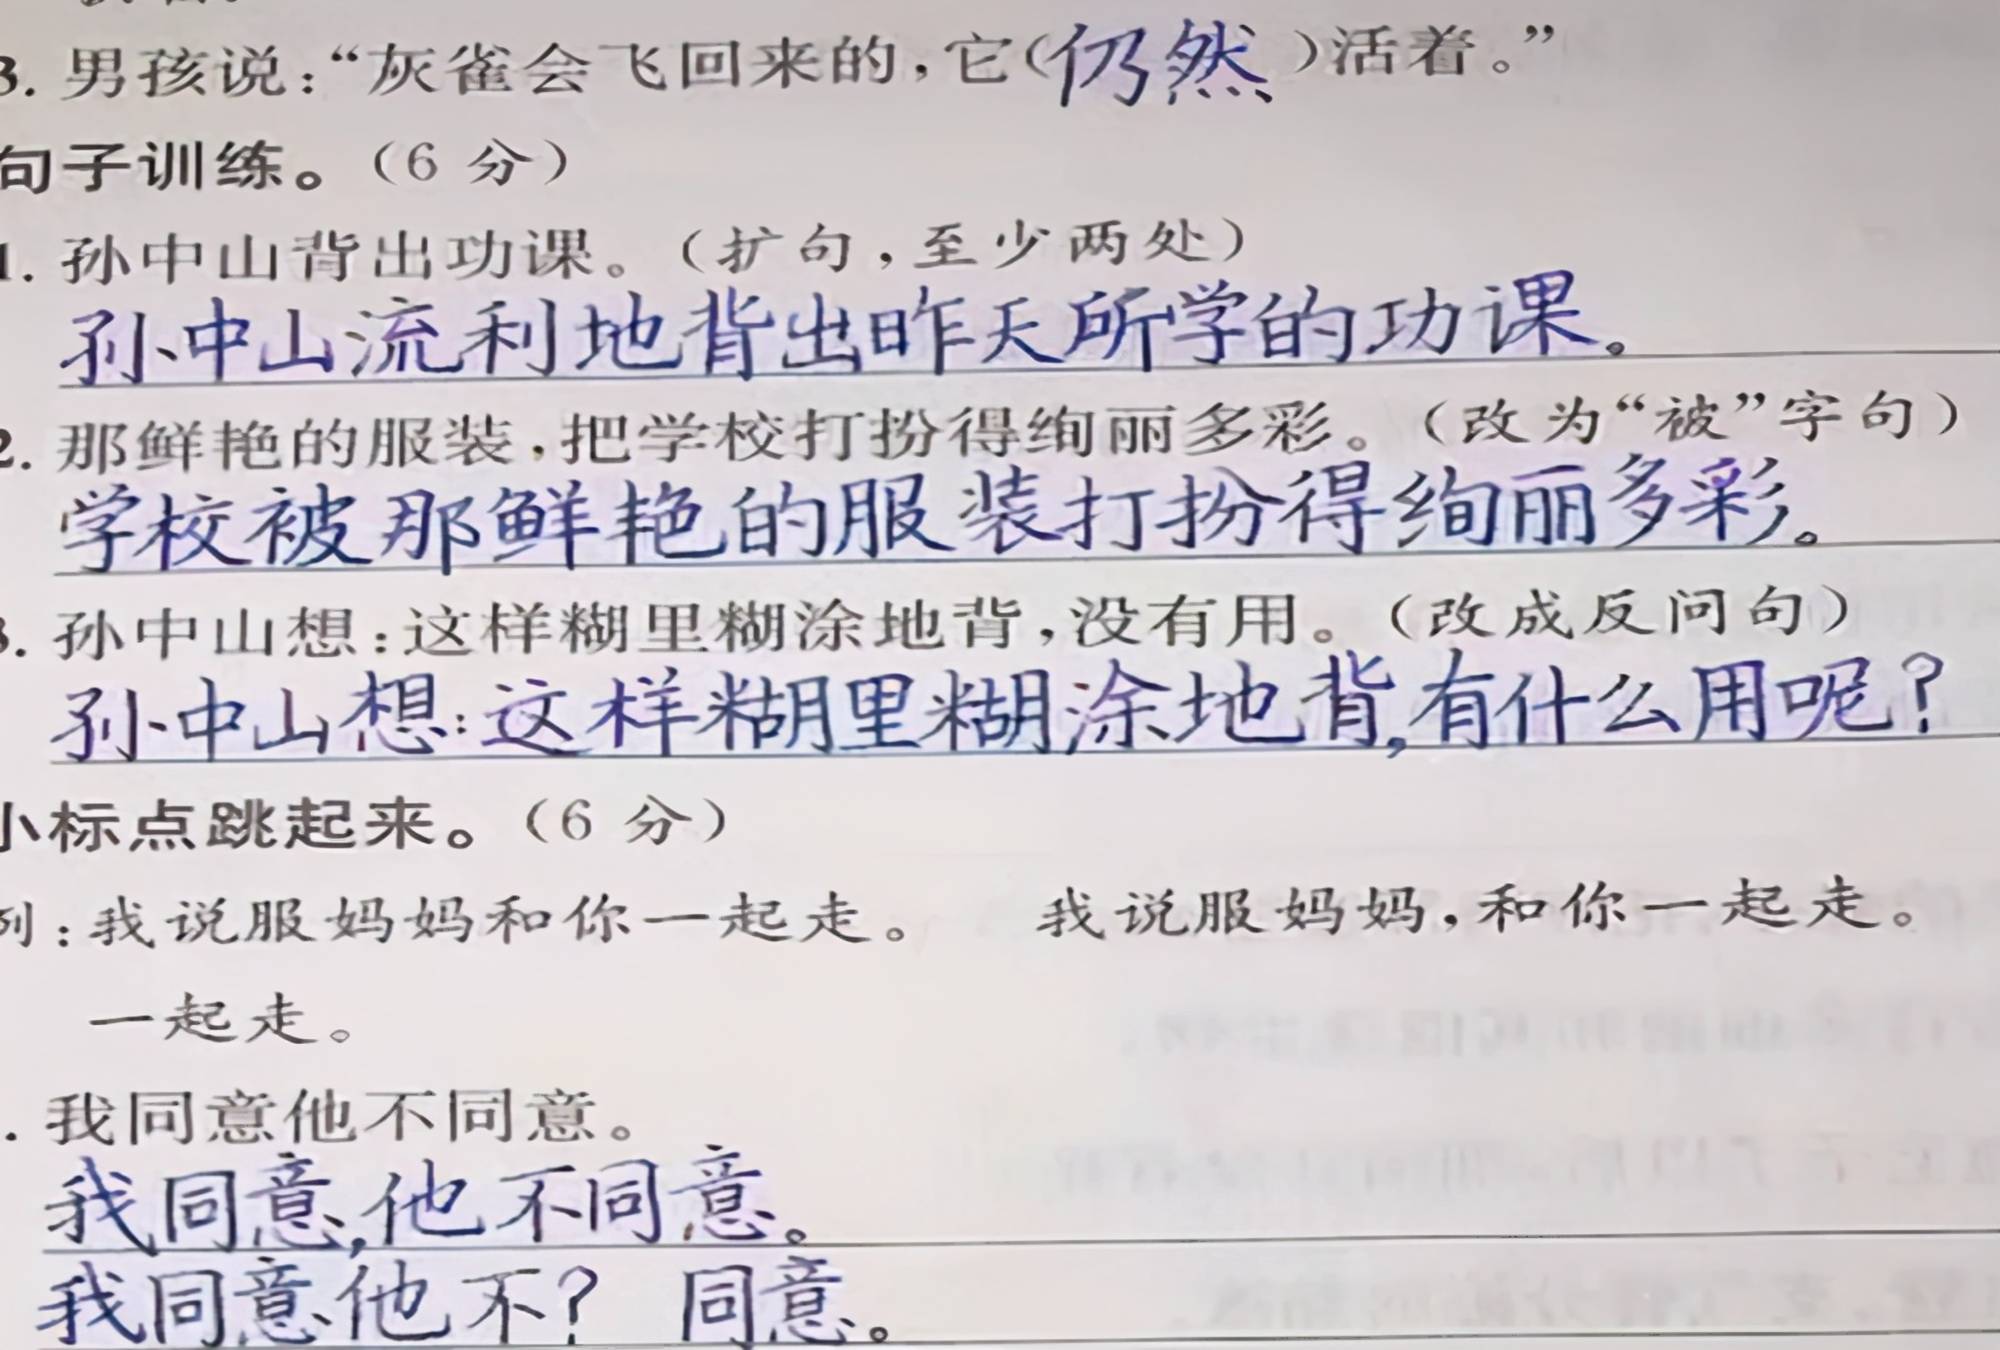 3. 男孩说：“灰雀会飞回来的，它（仍然）活着。”
句子训练。（6 分）
1. 孙中山背出功课。（扩句，至少两处）
孙中山流利地背出昨天所学的功课。
2. 那鲜艳的服装，把学校打扮得绚丽多彩。（改为“被”字句）
学校被那鲜艳的服装打扮得绚丽多彩。
3. 孙中山想：这样糊里糊涂地背，没有用。（改成反问句）
孙中山想：这样糊里糊涂地背，有什么用呢？
小标点跳起来。（6 分）
列：我说服妈妈和你一起走。 我说服妈妈，和你一起走。
一起走。
. 我同意他不同意。
我同意，他不同意。
我同意他不？ 同意。